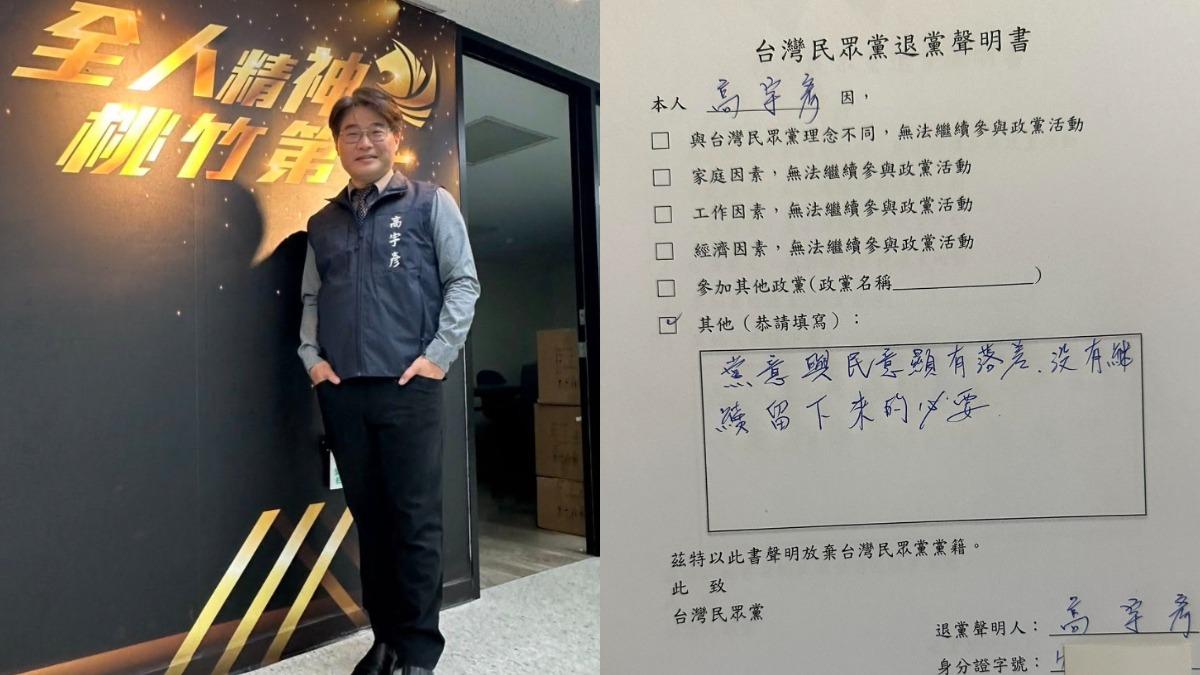 全人精神
桃竹第一
高宇彥
台灣民眾黨退黨聲明書
本人 高宇彥 因，
與台灣民眾黨理念不同，無法繼續參與政黨活動
家庭因素，無法繼續參與政黨活動
工作因素，無法繼續參與政黨活動
經濟因素，無法繼續參與政黨活動
參加其他政黨(政黨名稱____________)
其他（恭請填寫）：
黨意與民意顯有落差、沒有繼
續留下來的必要
茲特以此書聲明放棄台灣民眾黨黨籍。
此 致
台灣民眾黨
退黨聲明人：高宇彥
身分證字號：